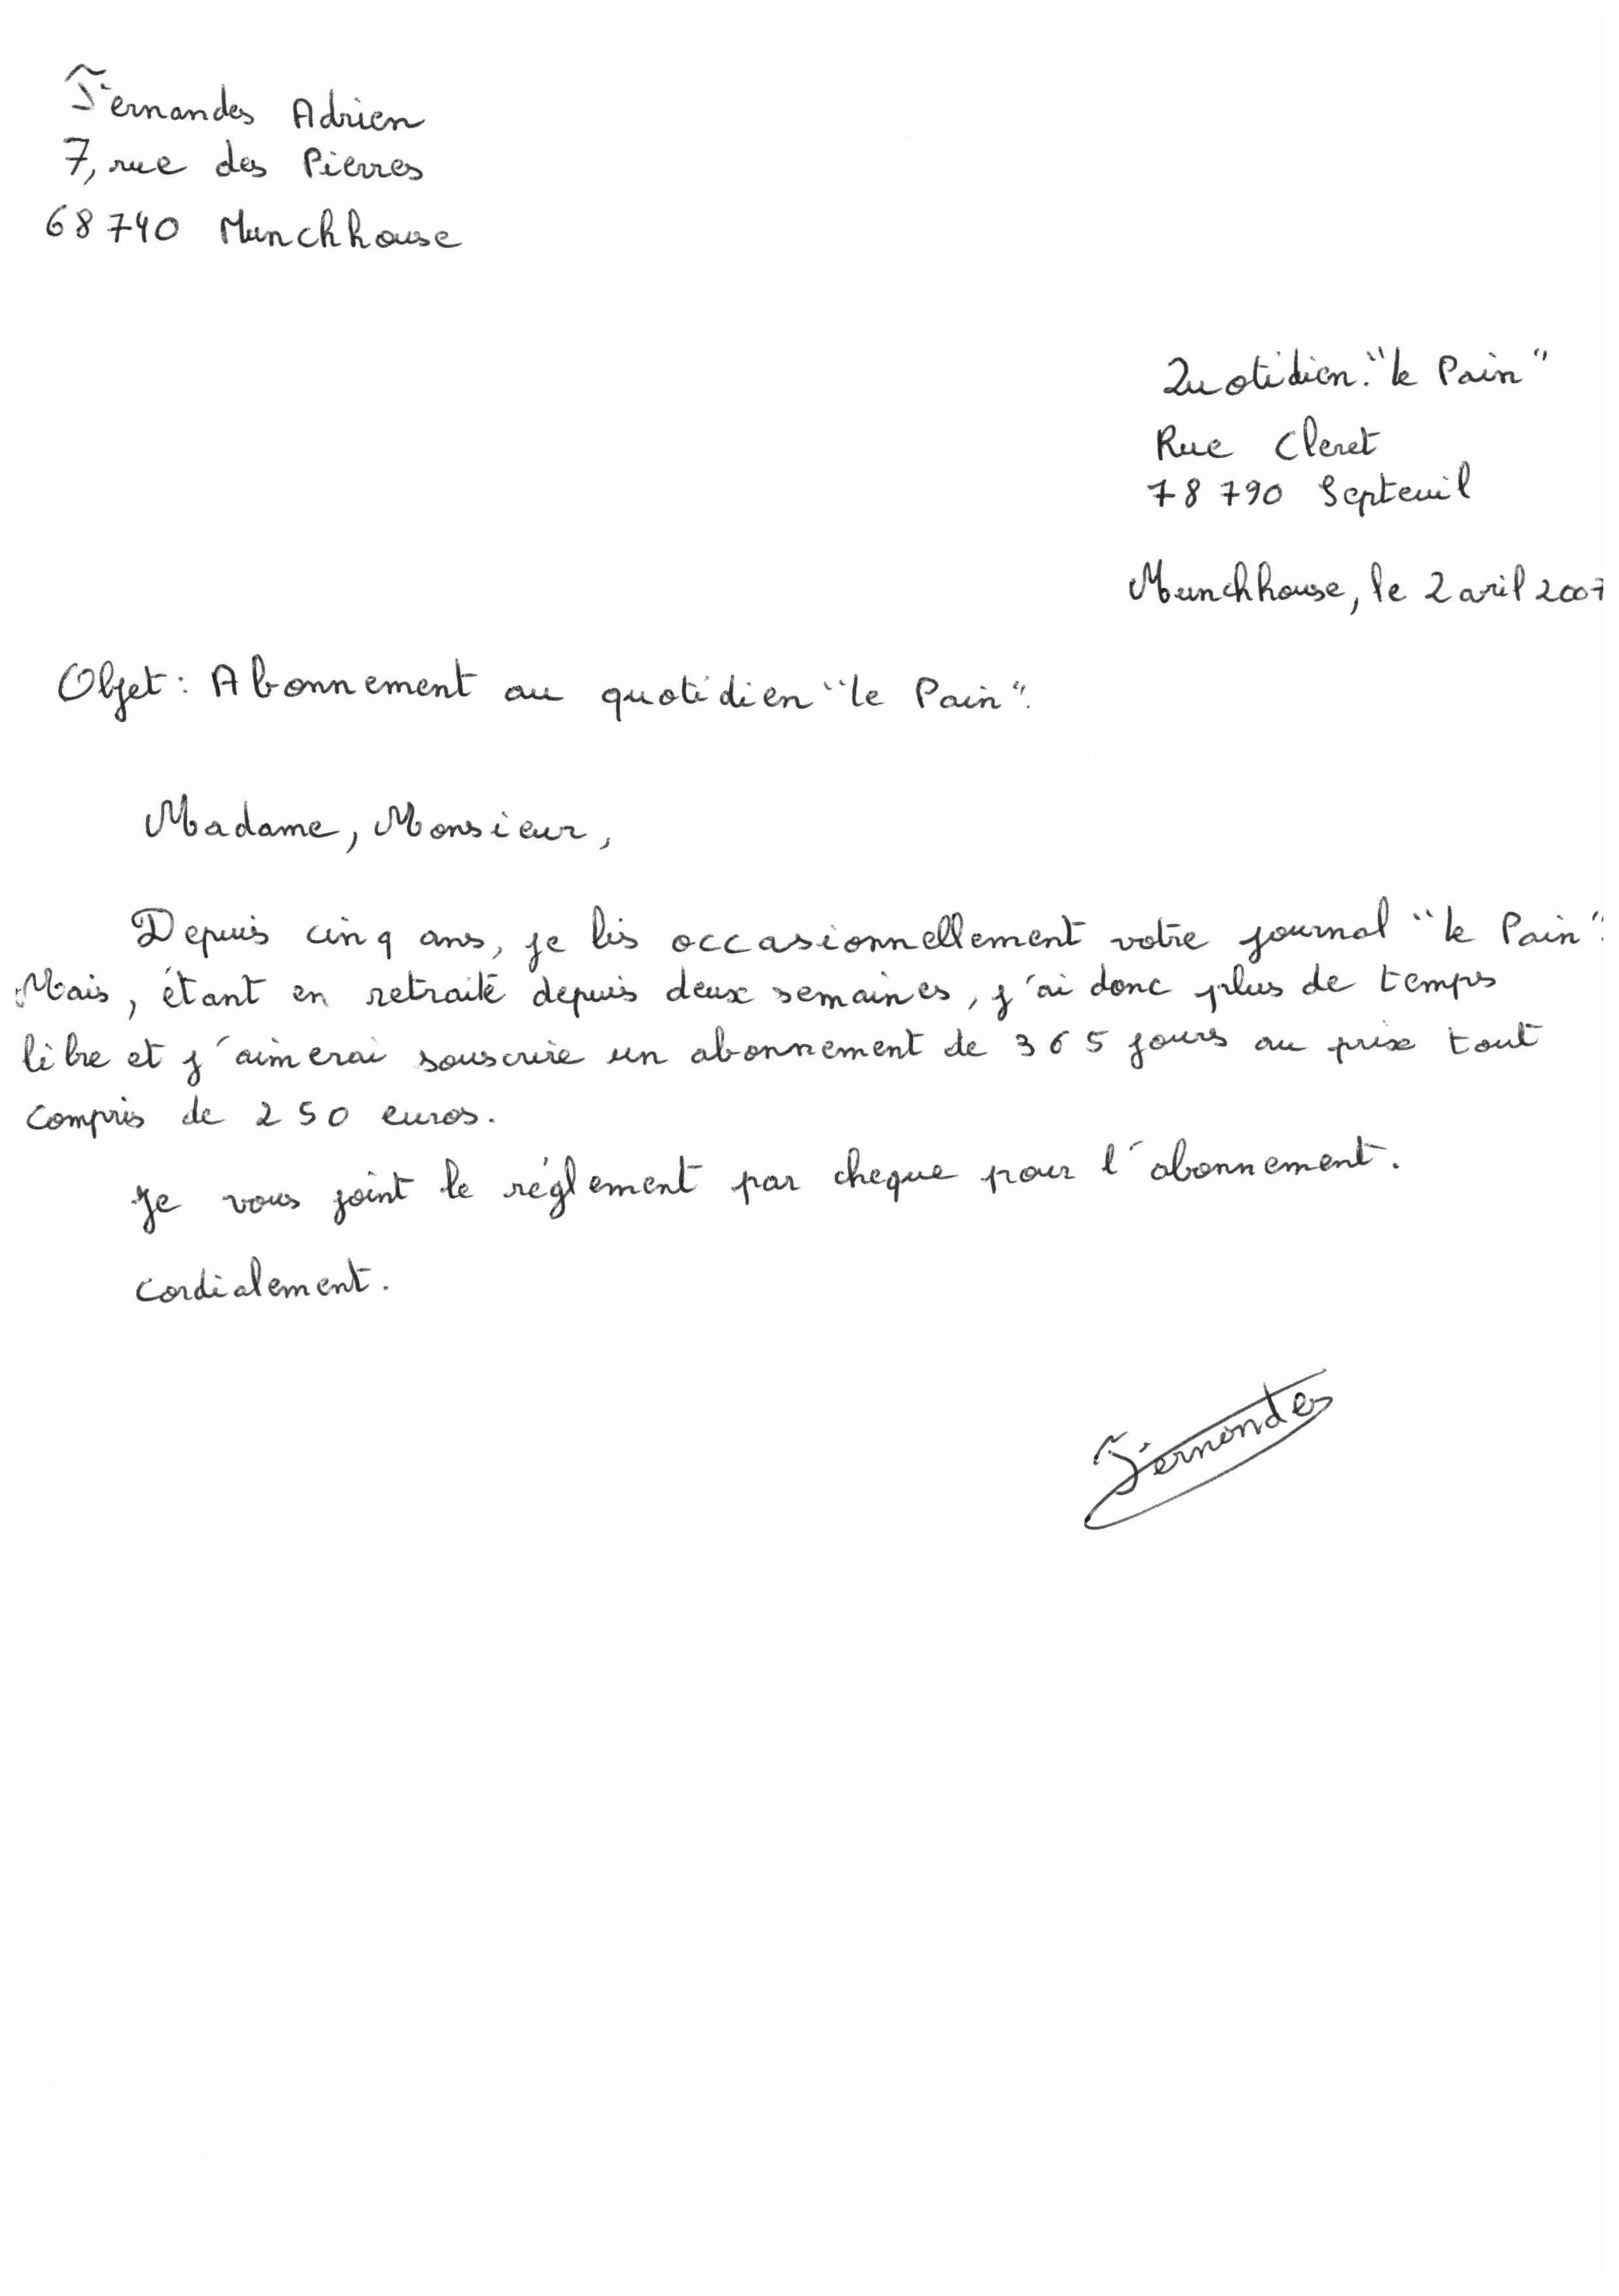 Fernandes Adrien
7, rue des Pierres
68740 Munchhouse
Quotidien "le Pain"
Rue Cleret
78790 Septeuil
Munchhouse, le 2 avril 2007
Objet : Abonnement au quotidien "le Pain".
Madame, Monsieur,
Depuis cinq ans, je lis occasionnellement votre journal "le Pain".
Mais, étant en retraité depuis deux semaines, j'ai donc plus de temps
libre et j'aimerai souscrire un abonnement de 365 jours au prix tout
compris de 250 euros.
Je vous joint le réglement par cheque pour l'abonnement.
Cordialement.
Fernandes